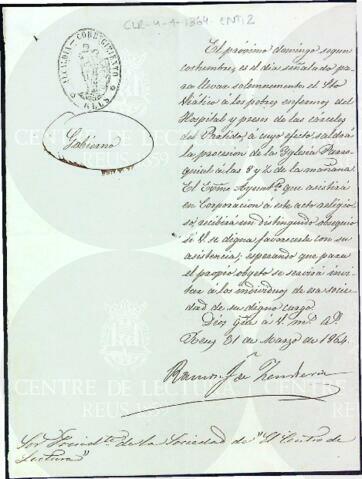 CLR-4-4-1864-ENT,2
ALCALDIA-CORREGIMIENTO
REUS
Gobierno
El próximo domingo segun
costumbre, es el dia señalado pa
ra llevar solemnemente el Sto
Viático à los pobres enfermos del
Hospital y presos de las cárceles
del Partido; à cuyo efecto saldrá
la procesion de la Yglesia Parro-
quial à las 8 y ½ de la mañana.
El Excmo Ayuntº que asistirá
en Corporacion à este acto religio
so, recibirá un distinguido obsequio
si V. se digna favorecerle con su
asistencia; esperando que para
el propio objeto se servirá invi-
tar à los individuos de esa socie
dad de su digno cargo.
Dios gde à V. ms. as.
Reus 31 de Marzo de 1864.
Sor Presidte de la Sociedad de "El Centro de
Lectura"
CENTRE DE LECTURA
REUS 1859